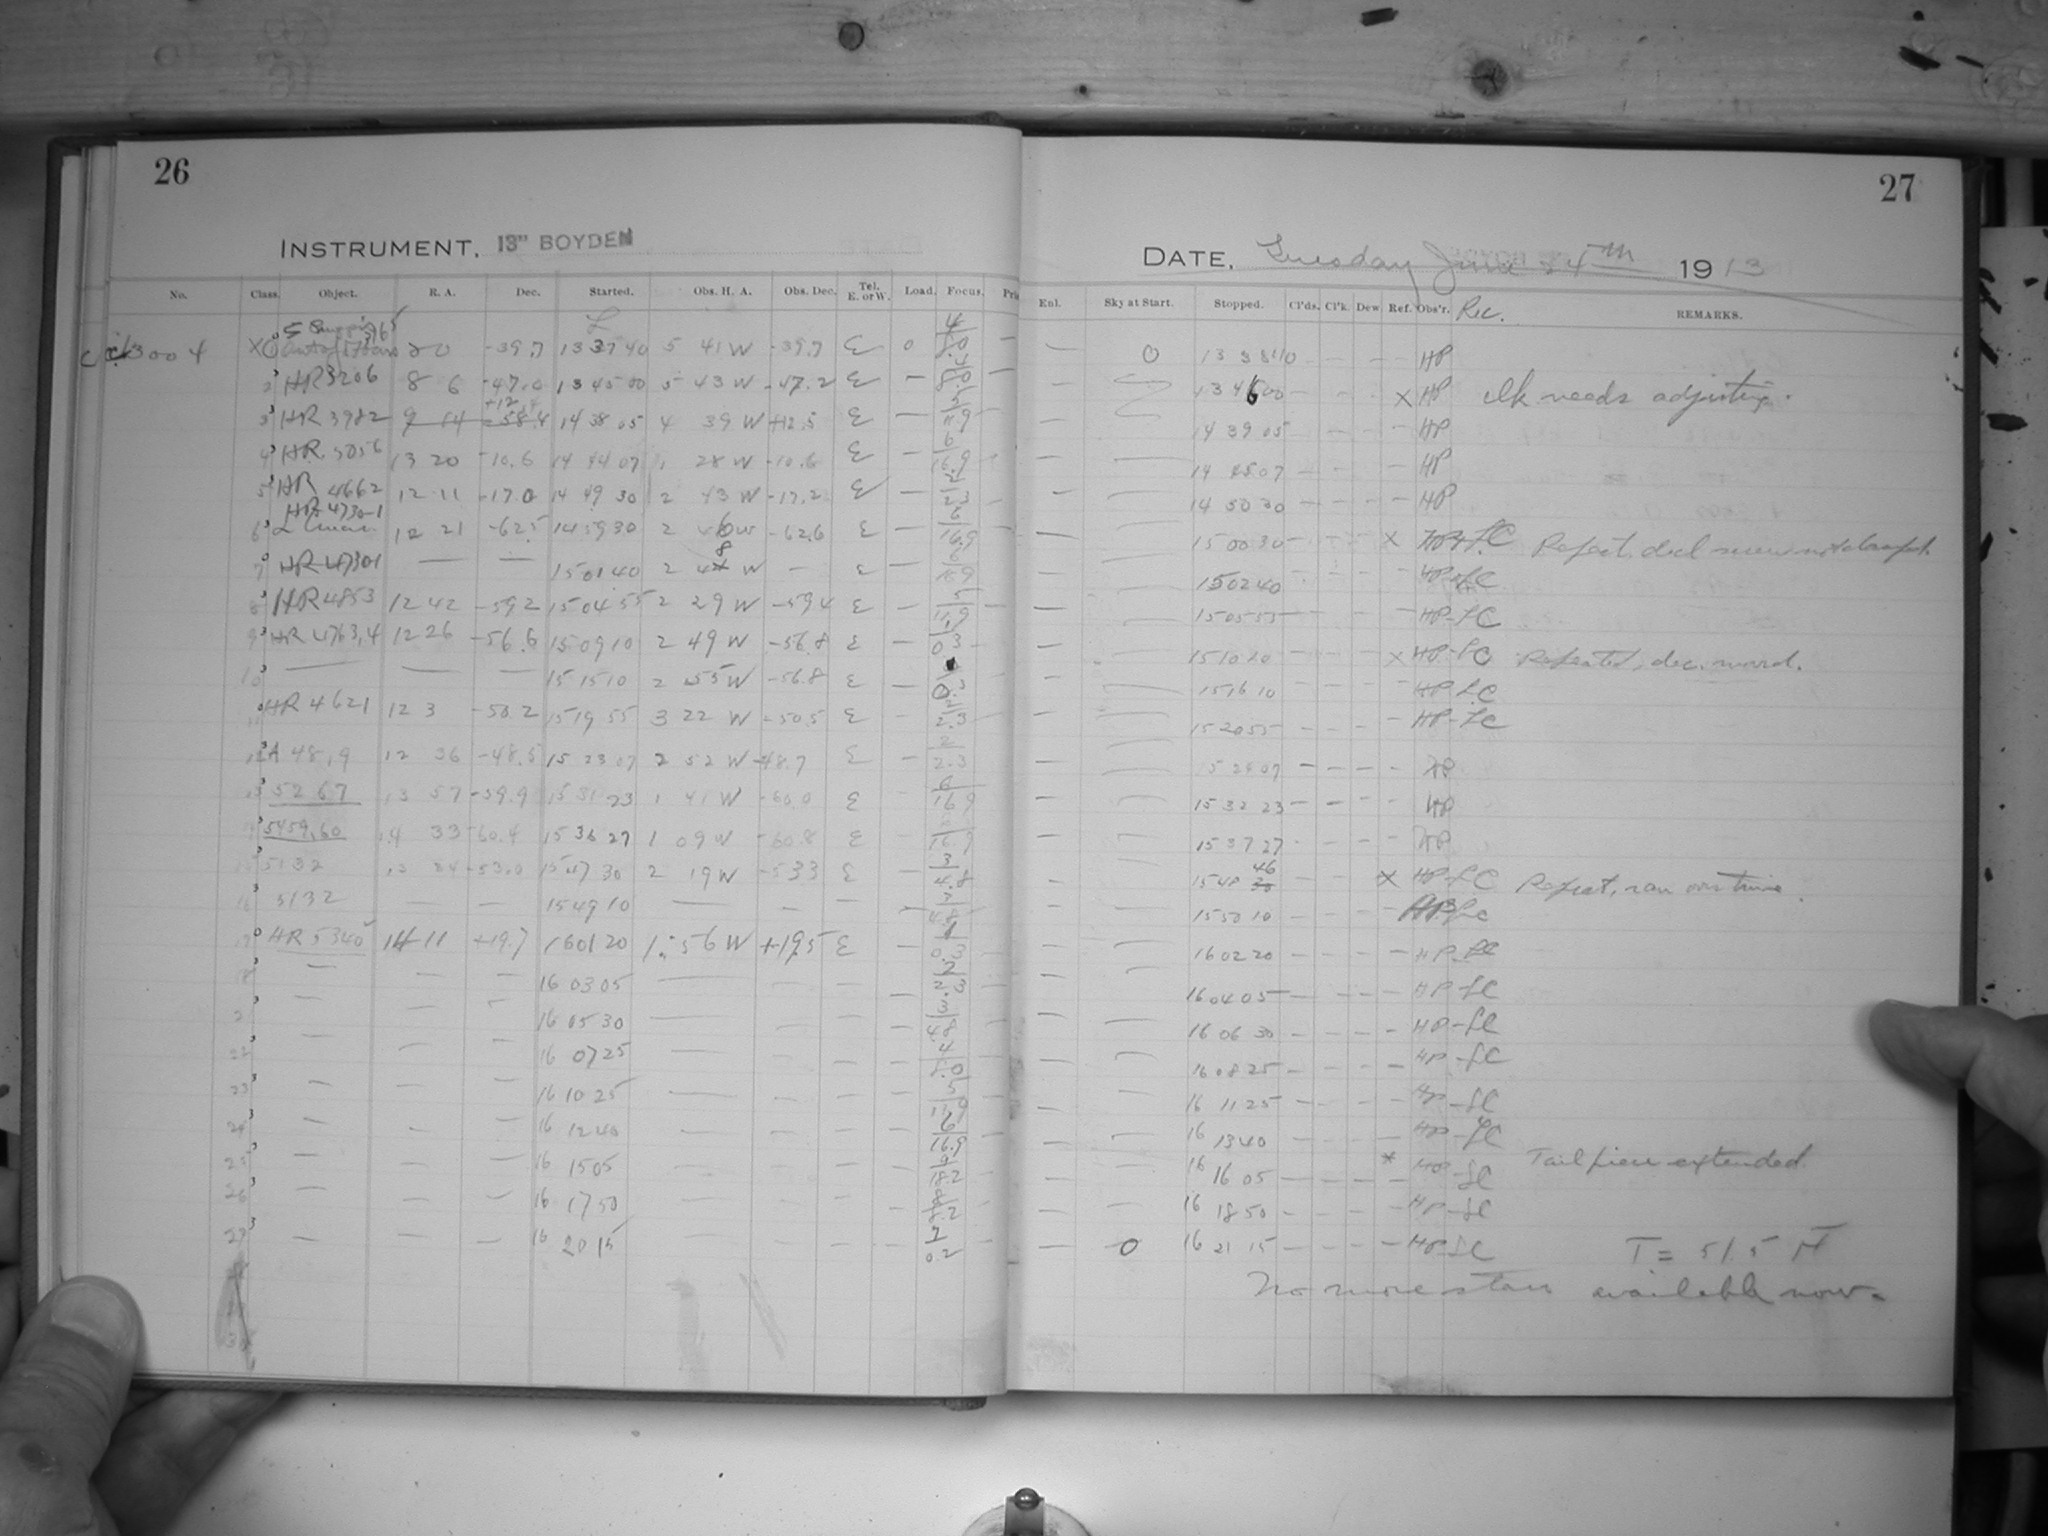 26
INSTRUMENT, 13" BOYDEN
No. Class. Object. R. A. Dec. Started. Obs. H. A. Obs. Dec. Tel. E. or W. Load. Focus.
3165
8 0 -39.7 13 37 40 5 41 W -39.7 E 0
HR 3206 8 6 13 45 00 5 43 W -47.2 E —
+12.4
HR 3982 9 14 -58.4 14 38 05 4 39 W +12.5 E — 11.9
HR 5056 13 20 -10.6 14 44 07 1 28 W -10.6 E — 16.9
HR 4662 12 11 -17.0 14 49 30 2 43 W -17.2 E —
HR 4730-1
12 21 -62.5 14 59 30 2 W -62.6 E — 16.9
HR 4730-1 — — 15 01 40 2 48 W — E
HR 4853 12 42 -59.2 15 04 55 2 29 W -59.4 E — 11.9
HR 4763,4 12 26 -56.6 15 09 10 2 49 W -56.8 E — 0.3
— — — 15 15 10 2 55 W -56.8 E — 0.3
HR 4621 12 3 -50.2 15 19 55 3 22 W -50.5 E — 2.3
A 48,9 12 36 -48.5 15 23 07 2 52 W -48.7 E — 2.3
5267 13 57 -59.9 15 31 23 1 41 W -60.0 E 16.9
5459,60 14 33 -60.4 15 36 27 1 09 W -60.8 E 16.9
5132 13 34 -53.0 15 47 30 2 19 W -53.3 E — 4.8
5132 — — 15 49 10 — — — 4.8
HR 5340 14 11 +19.7 16 01 20 1 56 W +19.5 E — 0.3
— — — 16 03 05 — — — — 2.3
— — — 16 05 30 — — — — 4.8
— — — 16 07 25 — — — —
— — — 16 10 25 — — — — 11.9
— — — 16 12 40 — — — — 16.9
— — — 16 15 05 — — — —
— — — 16 17 50 — — — —
— — — 16 20 15 — — — — 0.2
27
DATE, Tuesday June 24th 1913
Enl. Sky at Start. Stopped. Cl'ds. Cl'k. Dew Ref. Obs'r. Rec. REMARKS.
— 0 13 38 40 — — — — HP
— 13 46 00 — — — X HP Clk needs adjusting.
— 14 39 05 — — — — HP
— 14 45 07 — — — — HP
— 14 50 30 — — — — HP
— 15 00 30 — — — X HP-LC Repeat. decl
— 15 02 40 — — — — HP-LC
— 15 05 55 — — — — HP-LC
— 15 10 20 — — — X HP-LC Repeated, dec. moved.
— 15 16 10 — — — — HP-LC
— 15 20 55 — — — — HP-LC
— 15 24 07 — — — — HP
— 15 32 23 — — — — HP
— 15 37 27 — — — — HP
46
— 15 48 30 — — — X HP-LC Repeat, ran over time.
— 15 50 10 — — — — HP-LC
— 16 02 20 — — — — HP-LC
— 16 04 05 — — — — HP-LC
— 16 06 30 — — — — HP-LC
— 16 08 25 — — — — HP-LC
— 16 11 25 — — — — HP-LC
— 16 13 40 — — — — HP-LC
— 16 16 05 — — — * HP-LC Tail piece extended.
— 16 18 50 — — — — HP-LC
— 0 16 21 15 — — — — HP-LC T = 51.5 F
No more stars available now.